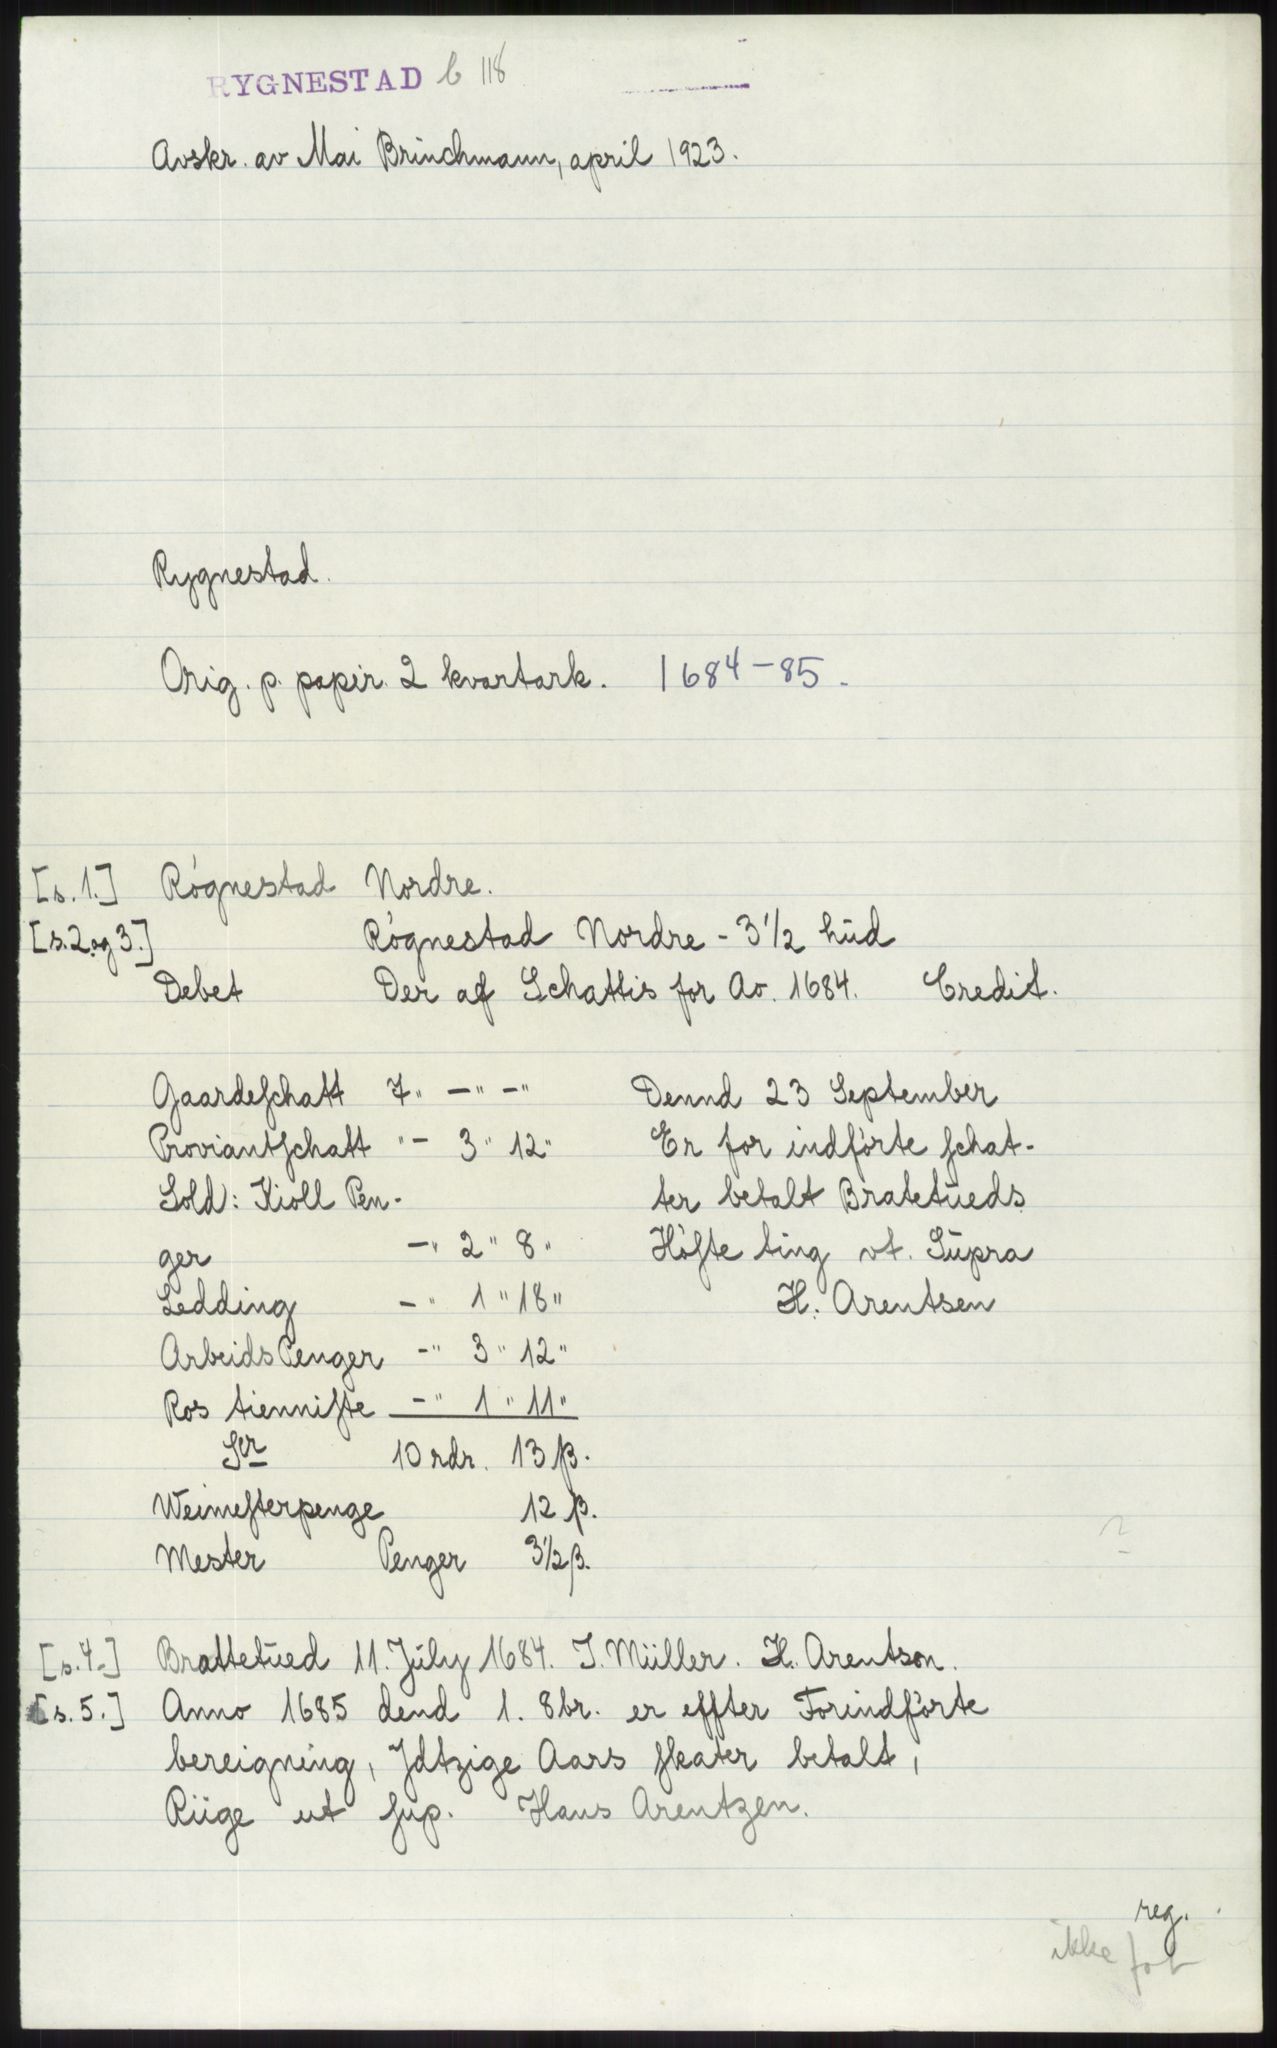 RYGNESTAD b 118
Avskr. av Mai Brinchmann, april 1923.
Rygnestad.
Orig. p. papir. 2 kvartark. 1684-85.
[s. 1.] Rógnestad Nordre.
[s. 2 og 3.] Rógnestad Nordre - 3 1/2 hud
Debet Der af Schattis for Ao. 1684. Credit.
Gaardeschatt 7" -" -" Dennd 23 September
Proviantschatt "- 3" 12" Er for indförte schat-
Sold: Kioll Pen- ter betalt Bratetueds
ger -" 2" 8" Höfte ting vt. Supra
Ledding -" 1" 18" H. Arentsen
Arbeids Penger -" 3" 12"
Ros tienniste -" 1" 11"
Ser 10 rdr. 13 β.
Weimesterpenge 12 β.
Mester Penger 3 1/2 β.
[s. 4.] Brattetued 11. July 1684. J. Müller. H. Arentson.
[s. 5.] Anno 1685 dend 1. 8br. er effter Forindförte
bereigning, Jdtzige Aars skater betalt,
Riige ut sup. Hans Arentzen.
reg.
ikke fot